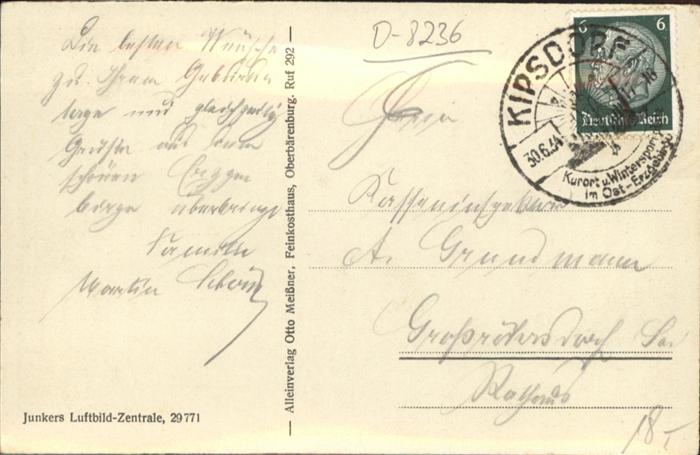 Die besten Wünsche
zu Ihrem Geburts
tage und gleichzeitig
Grüße aus dem
schönen Erzge
birge überbringt
Familie
Martin
Junkers Luftbild-Zentrale, 29771
— Alleinverlag Otto Meißner, Feinkosthaus, Oberbärenburg. Ruf 292 —
D-8236
6 6
Deutsches Reich
KIPSDORF
30.6.34
Kurort u. Wintersportpl.
im Ost-Erzgebirge
Herrn
Kasseninspektor
A. Grundmann
Großröhrsdorf Sa.
Rathaus
18,-